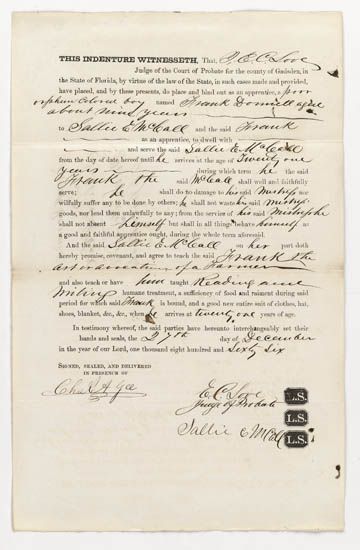 THIS INDENTURE WITNESSETH, That, I, E. C. Love
Judge of the Court of Probate for the county of Gadsden, in
the State of Florida, by virtue of the law of the State, in such cases made and provided,
have placed, and by these presents, do place and bind out as an apprentice, a poor
orphan colored boy named Frank aged
about nine years
to Sallie E McCall and the said Frank
as an apprentice, to dwell with
and serve the said Sallie E McCall
from the day of date hereof until he arrives at the age of Twenty one
years during which term he the
Frank the said McCall shall well and faithfully
serve; he shall do no damage to his said Mistress nor
willfully suffer any to be done by others; he shall not waste his said Mistress
goods, nor lend them unlawfully to any; from the service of his said Mistress he
shall not absent himself but shall in all things behave himself as
a good and faithful apprentice ought, during the whole term aforesaid.
And the said Sallie E McCall on her part doth
hereby promise, covenant, and agree to teach the said Frank the
art of a Farmer
and also teach or have him taught Reading and
Writing humane treatment, a sufficiency of food and raiment during said
period for which said Frank is bound, and a good new entire suit of clothes, hat,
shoes, blanket, &c., &c., when he arrives at twenty one years of age.
In testimony whereof, the said parties have hereunto interchangeably set their
hands and seals, the 27th day of December
in the year of our Lord, one thousand eight hundred and Sixty Six
SIGNED, SEALED, AND DELIVERED
IN PRESENCE OF
Chas. H. Gee
E. C. Love L.S.
Judge of Probate
L.S.
Sallie E McCall L.S.